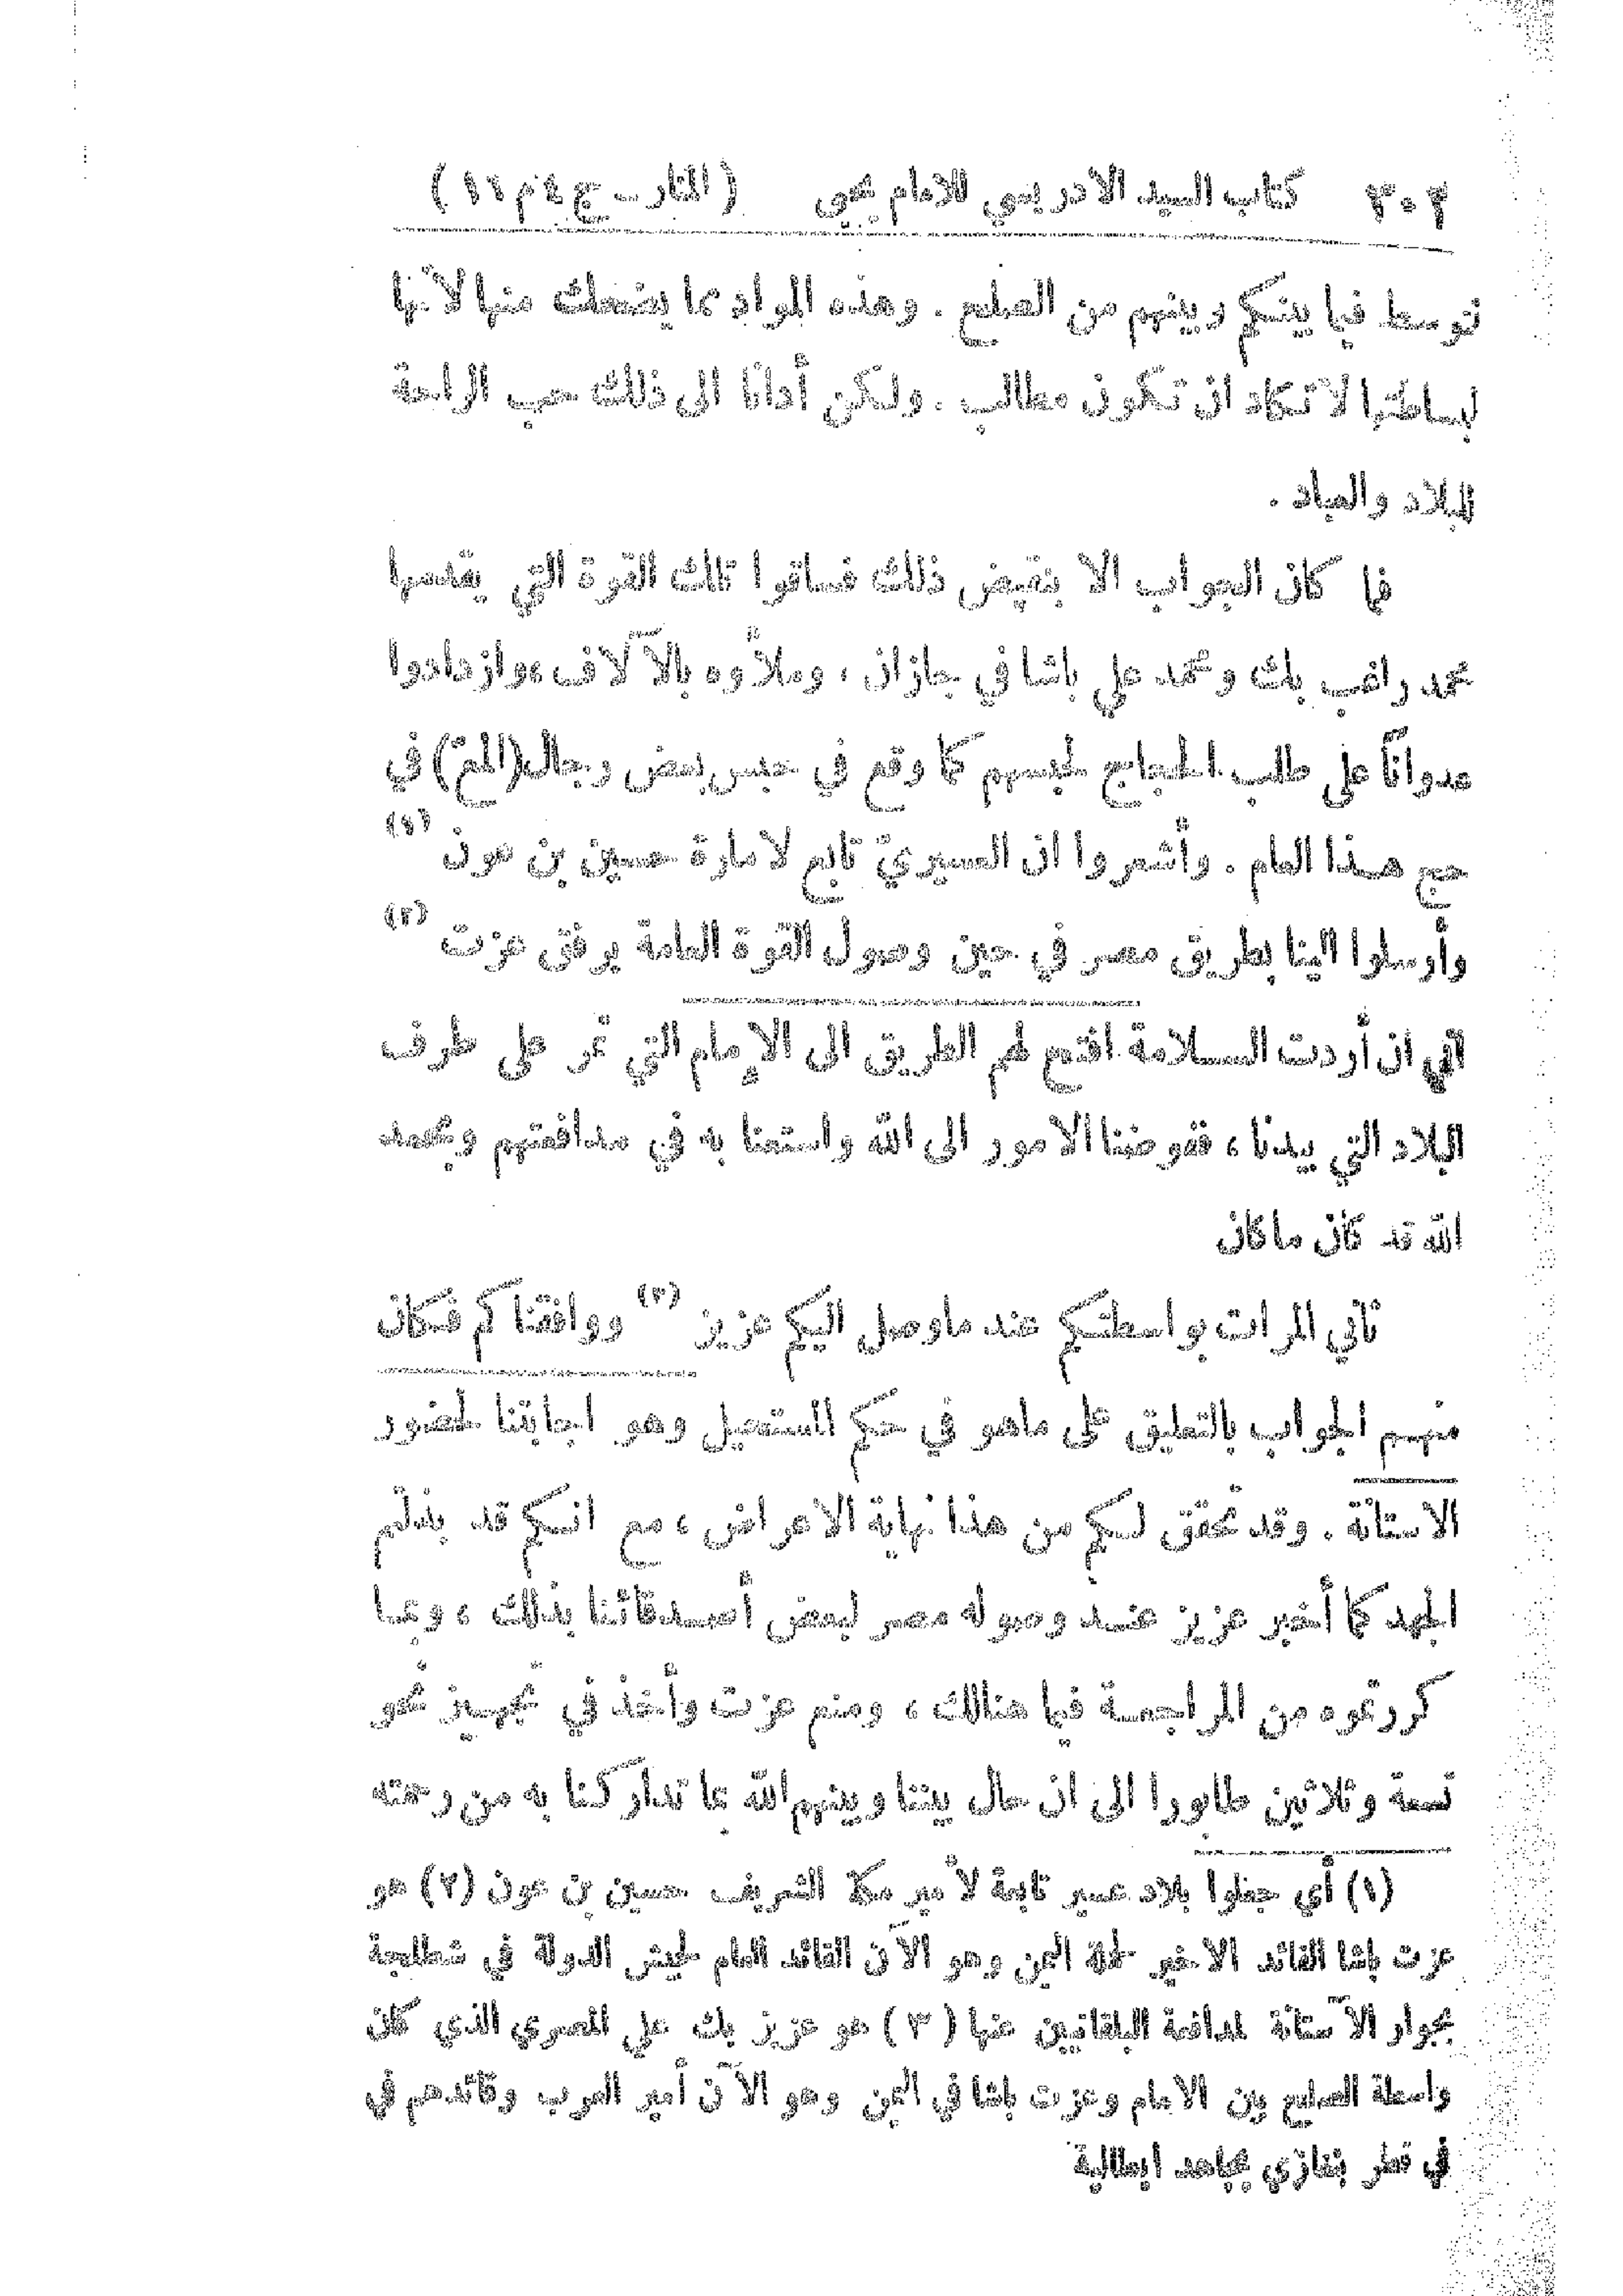 ٣٠٤ كتاب السيد الادريسي للامام يحيى (المنار ـ ج ٤ م ١٦)
توسط فيما بينكم وبينهم من الصلح . وهذه المواد مما يضحك منها لأنها
لبساطتها لا تكاد ان تكون مطالب . ولكن أدانا الى ذلك حب الراحة
للبلاد والعباد .
فما كان الجواب الا بنقيض ذلك فساقوا تلك القوة التي يقدمها
محمد راغب بك ومحمد علي باشا في جازان ، وملأوه بالآلاف ، وازدادوا
عدوانًا على طلب الحجاج لحبسهم كما وقع في حبس بعض رجال (المع) في
حج هذا العام . وأشعروا ان العسيريّ تابع لامارة حسين بن عون (١)
وأرسلوا الينا بطريق مصر في حين وصول القوة العامة برفق عزت (٢)
اني ان أردت السلامة افتح لهم الطريق الى الإمام التي تمر على طرف
البلاد التي بيدنا ، ففوضنا الامور الى الله واستعنا به في مدافعتهم وبحمد
الله قد كان ما كان
ثاني المرات بواسطتكم عند ما وصل اليكم عزيز (٣) ووافقناكم فكان
منهم الجواب بالتعليق على ماهو في حكم المستحيل وهو اجابتنا لحضور
الاستانة . وقد تحقق لكم من هذا نهاية الاعراض ، مع انكم قد بذلتم
الجهد كما أخبر عزيز عند وصوله مصر لبعض أصدقائنا بذلك ، وبما
كررتموه من المراجعة فيما هنالك ، ومنع عزت وأخذ في تجهيز نحو
تسعة وثلاثين طابورا الى ان حال بيننا وبينهم الله بما تداركنا به من رحمته
(١) أي جعلوا بلاد عسير تابعة لأمير مكة الشريف حسين بن عون (٢) هو
عزت باشا القائد الاخير لحملة اليمن وهو الآن القائد العام لجيش الدولة في شطلجة
بجوار الآستانة لمدافعة البلقانيين عنها (٣) هو عزيز بك علي المصري الذي كان
واسطة الصلح بين الامام وعزت باشا في اليمن وهو الآن أمير العرب وقائدهم في
في قطر بنغازي يجاهد ايطالية